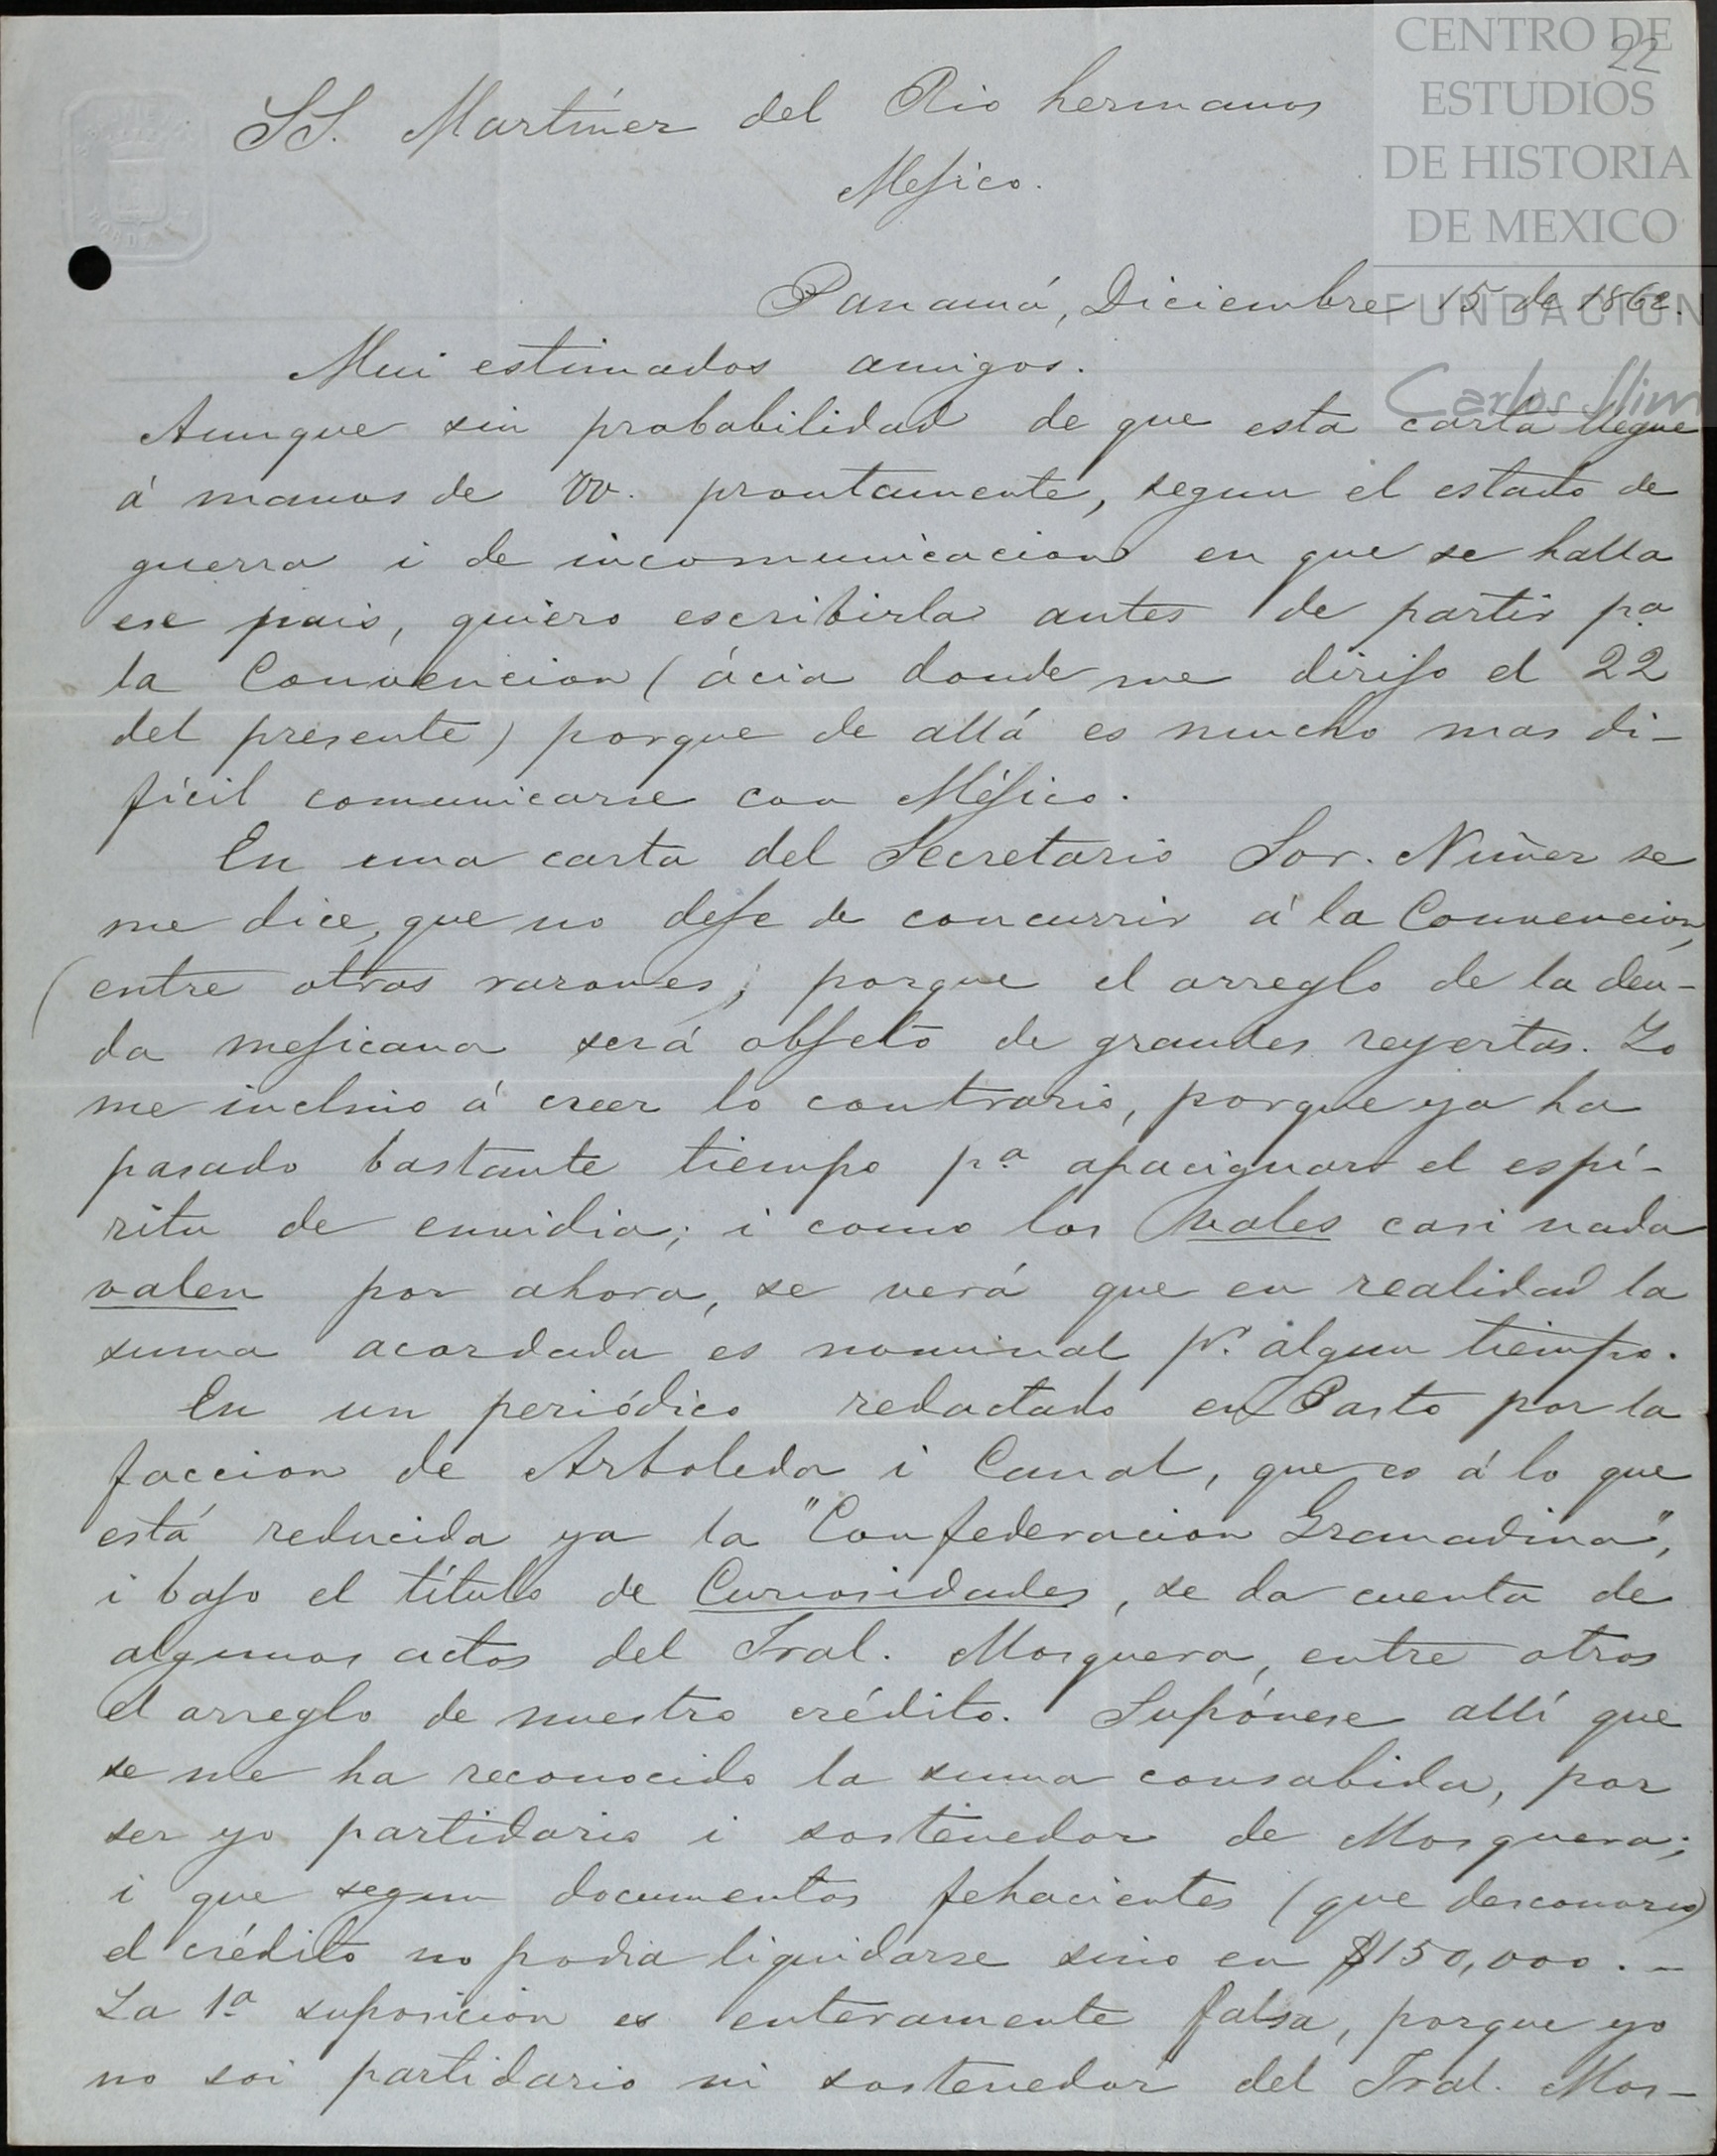 CENTRO DE
22
ESTUDIOS
DE HISTORIA
DE MEXICO
FUNDACIÓN
Carlos Slim
SS. Martínez del Rio hermanos
Méjico.
Panamá, Diciembre 15 de 1862.
Mui estimados amigos.
Aunque sin probabilidad de que esta carta llegue
á manos de VV. prontamente, segun el estado de
guerra i de incomunicacion en que se halla
ese pais, quiero escribirla antes de partir pa.
la Convencion (ácia donde me dirijo el 22
del presente) porque de allá es mucho mas di-
fícil comunicarse con Méjico.
En una carta del Secretario Sor. Núñez se
me dice, que no deje de concurrir á la Convencion,
(entre otras razones; porque el arreglo de la deu-
da mejicana será objeto de grandes reyertas. Yo
me inclino á creer lo contrario, porque ya ha
pasado bastante tiempo pa. apaciguar el espí-
ritu de envidia; i como los vales casi nada
valen por ahora, se verá que en realidad la
suma acordada es nominal pr. algun tiempo.
En un periódico redactado en Pasto por la
faccion de Arboleda i Canal, que es á lo que
está reducida ya la "Confederacion Granadina",
i bajo el título de Curiosidades, se da cuenta de
algunos actos del Jral. Mosquera, entre otros
el arreglo de nuestro crédito. Supónese allí que
se me ha reconocido la suma consabida, por
ser yo partidario i sostenedor de Mosquera;
i que segun documentos fehacientes (que desconozco)
el crédito no podia liquidarse sino en $150,000. –
La 1a. suposicion es enteramente falsa, porque yo
no soi partidario ni sostenedor del Jral. Mos-